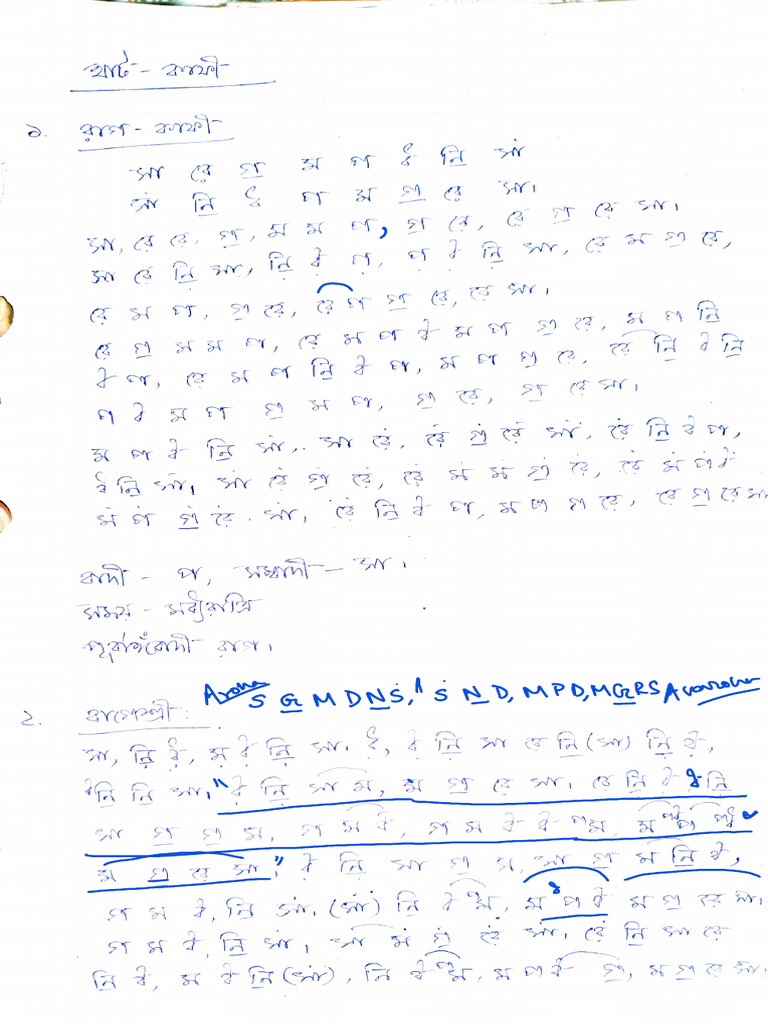 থাট - কাফী
১. রাগ - কাফী
সা রে গ॒ ম প ধ নি॒ সাং
সাং নি॒ ধ প ম গ॒ রে সা।
সা, রে রে, গ॒, ম ম প, গ॒ রে, রে গ॒ রে সা।
সা রে নি॒ সা, নি॒ ধ প, প ধ নি॒ সা, রে ম গ॒ রে,
রে ম প, গ॒ রে, রে প গ॒ রে, রে সা।
রে গ॒ ম ম প, রে ম প ধ ম প গ॒ রে, ম প নি॒
ধ প, রে ম প নি॒ ধ প, ম প গ॒ রে, রে নি॒ ধ নি॒
প ধ ম প গ॒ ম প, গ॒ রে, গ॒ রে সা।
ম প ধ নি॒ সাং, সা রেং, রেং গ॒ং রেং সাং, রেং নি॒ ধ প,
ধ নি॒ সাং, সাং রেং গ॒ং রেং, রেং মং মং গ॒ং রেং, রেং মং পং ধং
মং পং গ॒ং রেং সাং, রেং নি॒ ধ প, ম প গ রে, রে গ॒ রে সা
বাদী - পা, সম্বাদী - সা।
সময় - মধ্যরাত্রি
রাগ।
Aroha S G̲ M D N̲ Ṡ, Ṡ N̲ D, M P D, M G̲ R S Avaroha
২. বাগেশ্রী:
সা, নি॒ ধ, ম ধ নি॒ সা। ধ, ধ নি॒ সা রে নি॒ (সা) নি॒ ধ,
ধ নি॒ নি॒ সা। "ধ নি॒ সা ম, ম গ॒ রে সা। রে নি॒ ধ নি॒
সা গ॒ গ॒ ম, গ ম ধ, গ ম ধ ধ প ম, ম প ধ
ম গ॒ রে সা," ধ নি॒ সা গ॒ ম, সা গ॒ ম নি॒ ধ,
গ ম ধ, নি॒ সাং, (সাং) নি॒ ধ ম, ম প ধ ম গ॒ রে সা,
গ ম ধ, নি॒ সাং। সা মং গ॒ং রেং সাং, রেং নি॒ সা রে
নি॒ ধ, ম ধ নি॒ (সাং), নি ধ ম, ম প ধ গ॒, ম গ॒ রে সা,